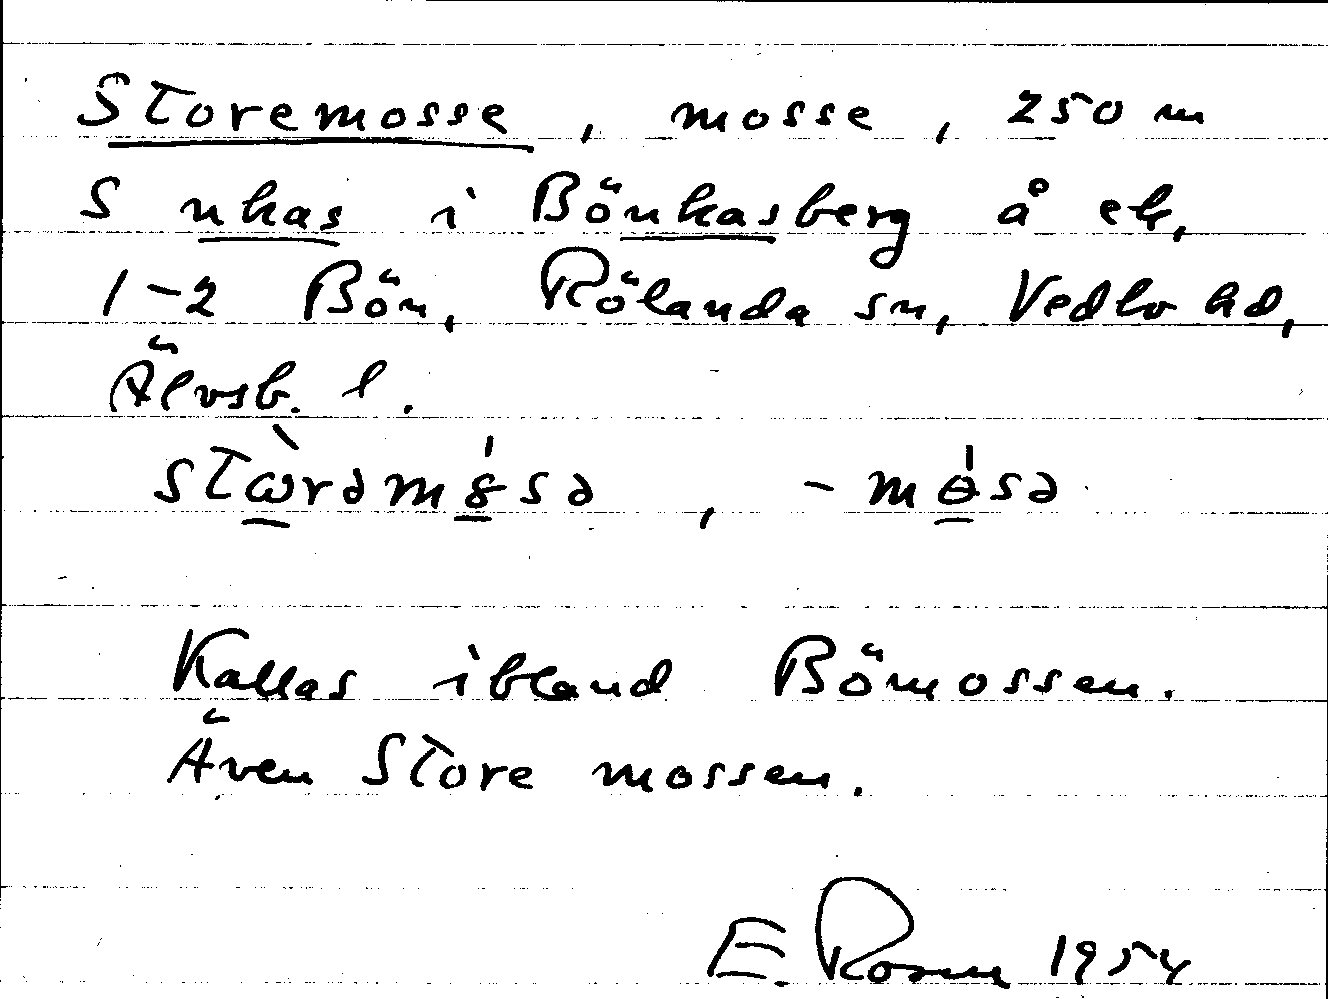 Storemosse, mosse, 250 m
S nkas i Bönkasberg å ek,
1-2 Bön, Rölanda sn, Vedbo hd,
Älvsb. l.
Kallas ibland Bömossen.
Även Store mossen.
E. Rosén 1954